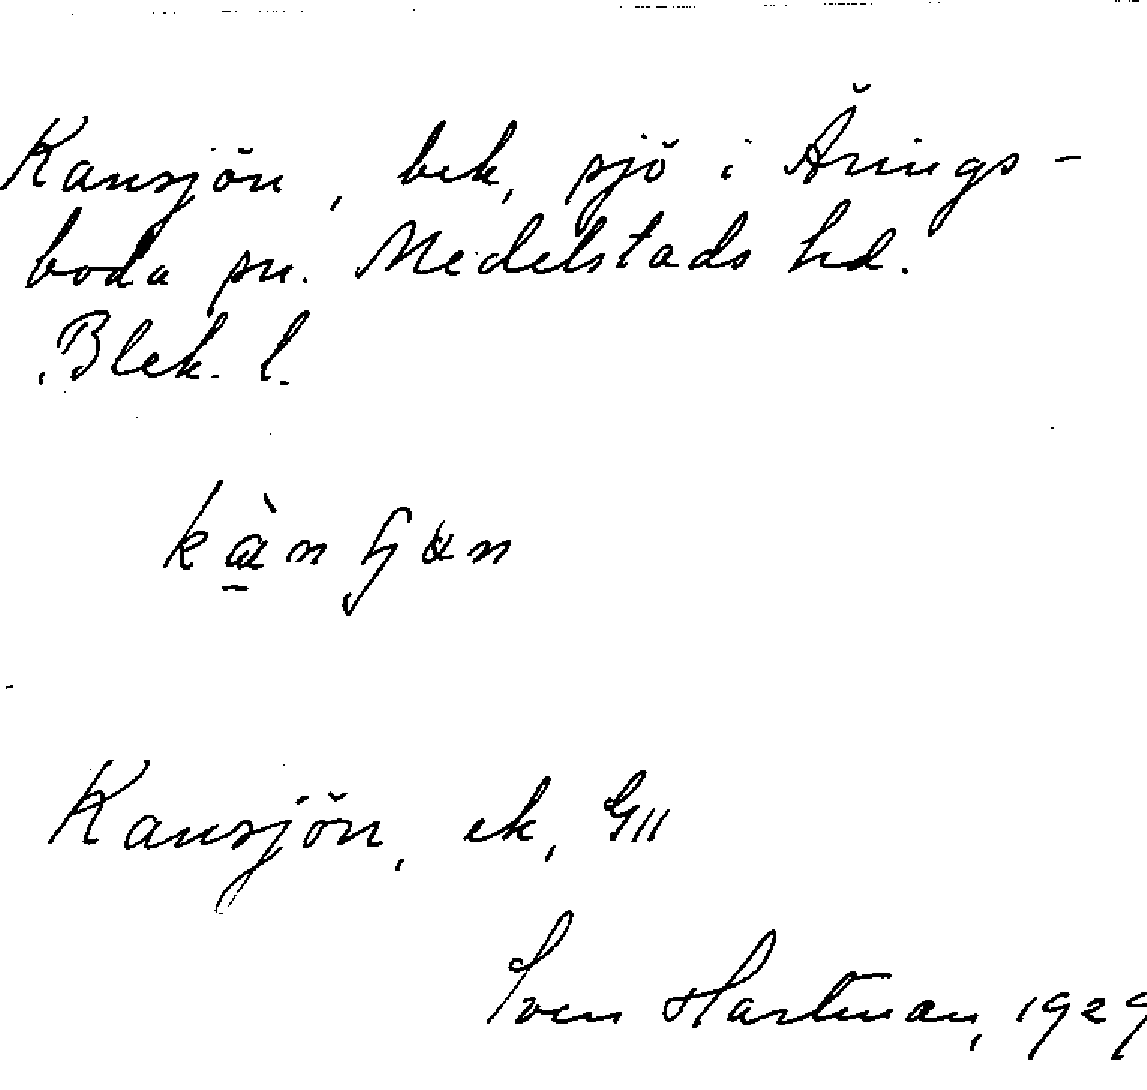 Kansjön, bek, sjö i Årings-
boda sn. Medelstads hd.
Blek. l.
Kansjön, ek, G11
Sven Hartman, 1929